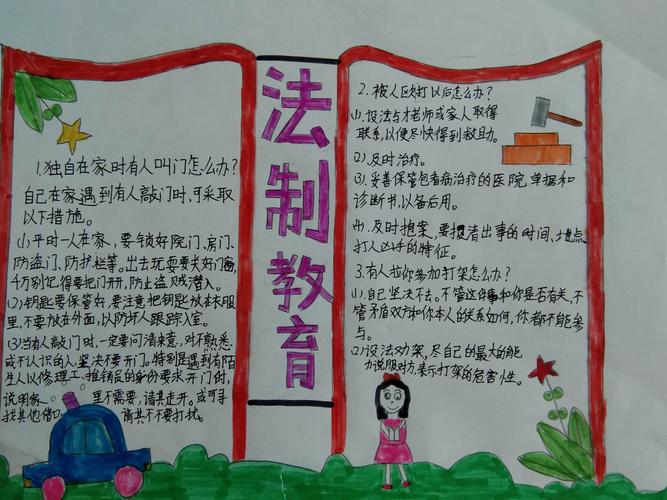 法制教育
1.独自在家时有人叫门怎么办?
自己在家遇到有人敲门时,可采取
以下措施。
(1)平时一人在家,要锁好院门、房门、
防盗门、防护栏等。出去玩耍要关好门窗,
千万别记得要把门开,防止盗贼潜入。
(2)钥匙要保管好,要注意把钥匙放在衣服
里,不要放在外面,以防坏人跟踪入室。
(3)当有人敲门时,一定要问清来意,对不熟悉
或不认识的人,坚决不要开门。特别是遇到有陌
生人以修理工、推销员的身份要求开门时,
说明家 里不需要,请其走开。或可寻
找其他借口 请其不要打扰。
2.被人殴打以后怎么办?
(1).设法与才老师或家人取得
联系,以便尽快得到救助。
(2).及时治疗。
(3).妥善保管包看病治疗的医院,单据和
诊断书,以备后用。
(4).及时抱案,要摸清出事的时间、地点
打人凶手的特征。
3.有人拉你参加打架怎么办?
(1).自己坚决不去。不管这件事和你是否有关,不
管矛盾双方和你本人的关系如何,你都不能参
与。
(2)设法劝架,尽自己的最大的能
力说服对方,表示打架的危害性。